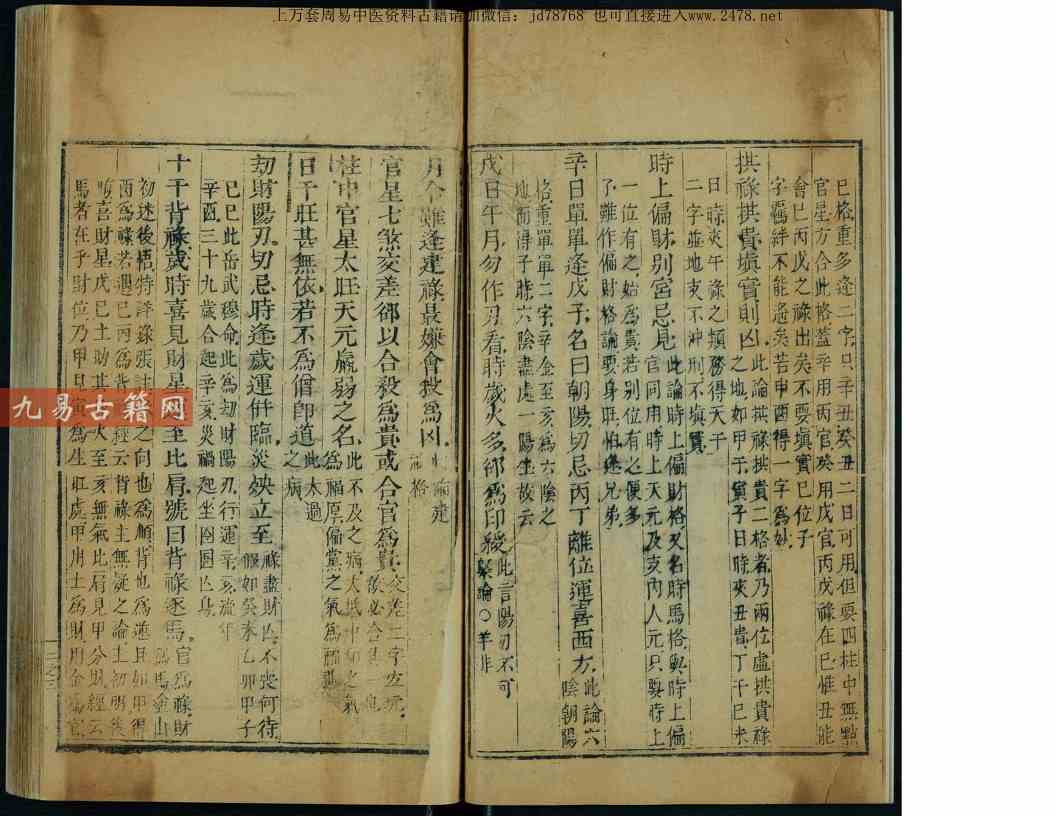 上万套周易中医资料古籍请加微信：jd78768 也可直接进入www.2478.net
巳格重多逢二字只辛丑癸丑二日可用但要四柱中無點
官星方合此格蓋辛用丙官癸用戊官丙戊祿在巳惟丑能
會巳丙戊之祿出矣不要填實巳位子
字羈絆不能遙矣若申酉得一字為妙
拱祿拱貴填實則凶此論拱祿拱貴二格者乃兩位虛拱貴祿
之地如甲子甲寅子日時夾丑貴丁干巳未
日時夾午祿之類務得天干
二字並地支不沖刑不填實
時上偏財別宮忌見此論時上偏財格又名時馬格與時上偏
官同用時上天元及支內人元只要時上
一位有之始為貴若別位有之便多
了雖作偏財格論要身旺怕逢兄弟
辛日單單逢戊子名曰朝陽切忌丙丁離位運喜西方此論六
陰朝陽
格重單單二字辛金至亥為六陰之
地而得子時六陰盡處一陽生故云
戊日午月勿作刃看時歲火多卻為印綬此言陽刃不可
槩論○羊非
月令雖逢建祿最嫌會殺為凶論建
格
官星七煞交差卻以合殺為貴或合官為貴交差二字
故必合
柱中官星太旺天元羸弱之名此不及之病大抵中和之氣
為福厚偏黨之氣為
日干旺甚無依若不為僧即道此太過
之病
劫財陽刃切忌時逢歲運併臨災殃立至祿盡財凶不喪何待
假如癸未乙卯甲子
己巳此岳武穆命此為劫財陽刃行運辛亥流年
辛酉三十九歲合起辛亥災禍起坐囹圄亡身
十干背祿歲時喜見財星運至比肩號曰背祿逐馬官為祿財
為馬
初述後悟特詳錄張註之向也為順背也為逆且如甲得
酉為祿若遇巳丙為背經云背祿主無疑之論土初明後
喜財星戊巳土助其火至亥無氣比肩見甲分財經云
馬者在乎財位乃甲見寅為生旺處甲用土為財用金為官
九易古籍网